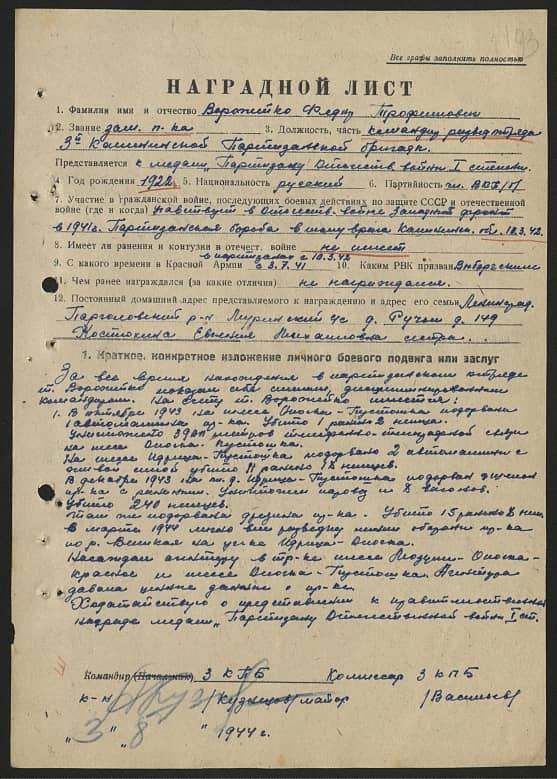 193
Все графы заполнять полностью
НАГРАДНОЙ ЛИСТ
1. Фамилия имя и отчество Ворожейко Федор Трофимович
2. Звание зам. п-ка 3. Должность, часть командир разведотряда
3й Калининской Партизанской бригады.
Представляется к медали "Партизану Отечеств. войны" I степени.
4 Год рождения 1922 5. Национальность русский 6. Партийность чл. ВЛКСМ
7. Участие в гражданской войне, последующих боевых действиях по защите СССР и отечественной
войне (где и когда) участвует в Отечеств. войне Западный фронт
в 1941г. Партизанская борьба в тылу врага Калининск. обл. 10.3.42
8. Имеет ли ранения и контузии в отечест. войне не имеет
в партизанах с 10.3.42
9. С какого времени в Красной Армии с 3.7.41 10. Каким РВК призван Выборгским
11. Чем ранее награждался (за какие отличия) не награждался.
12. Постоянный домашний адрес представляемого к награждению и адрес его семьи Ленинград.
Парголовский р-н с/с д. Ручьи д. 149
Костюхина Евгения Михайловна сестра.
1. Краткое, конкретное изложение личного боевого подвига или заслуг
За все время нахождения в партизанском отряде
т. Ворожейко показал себя смелым, дисциплинированным
командиром. На счету т. Ворожейко имеется:
1. В октябре 1943 на шоссе Опочка - Пустошка подорвана
1 автомашина пр-ка. Убито 1 ранено 2 немца.
Уничтожено метров телефонно-телеграфной связи
на шоссе Опочка - Пустошка.
На шоссе Идрица - Пустошка подорвано 2 автомашины с
живой силой убито 11 ранено 18 немцев.
В декабре 1943 на ж.д. Идрица - Пустошка подорвал эшелон
пр-ка с Уничтожен паровоз и 8 вагонов.
Убито 240 немцев.
Там же подорвана дрезина пр-ка. Убито 15 ранено 8 нем.
В марте 1944 лично вел разведку линии обороны пр-ка
по р. Великая на уч-ке Идрица - Опочка.
Насаждал агентуру в тр-ке шоссе Опочка -
Красное и шоссе Опочка - Пустошка. Агентура
давала ценные данные о пр-ке.
Ходатайствую о представлении к правительственной
награде медали "Партизану Отечественной войны" I ст.
Командир (Начальник) 3 КПБ Комиссар 3 КПБ
к-н /Кузнецов/ майор /Васильев/
" 3 " 8 1944 г.